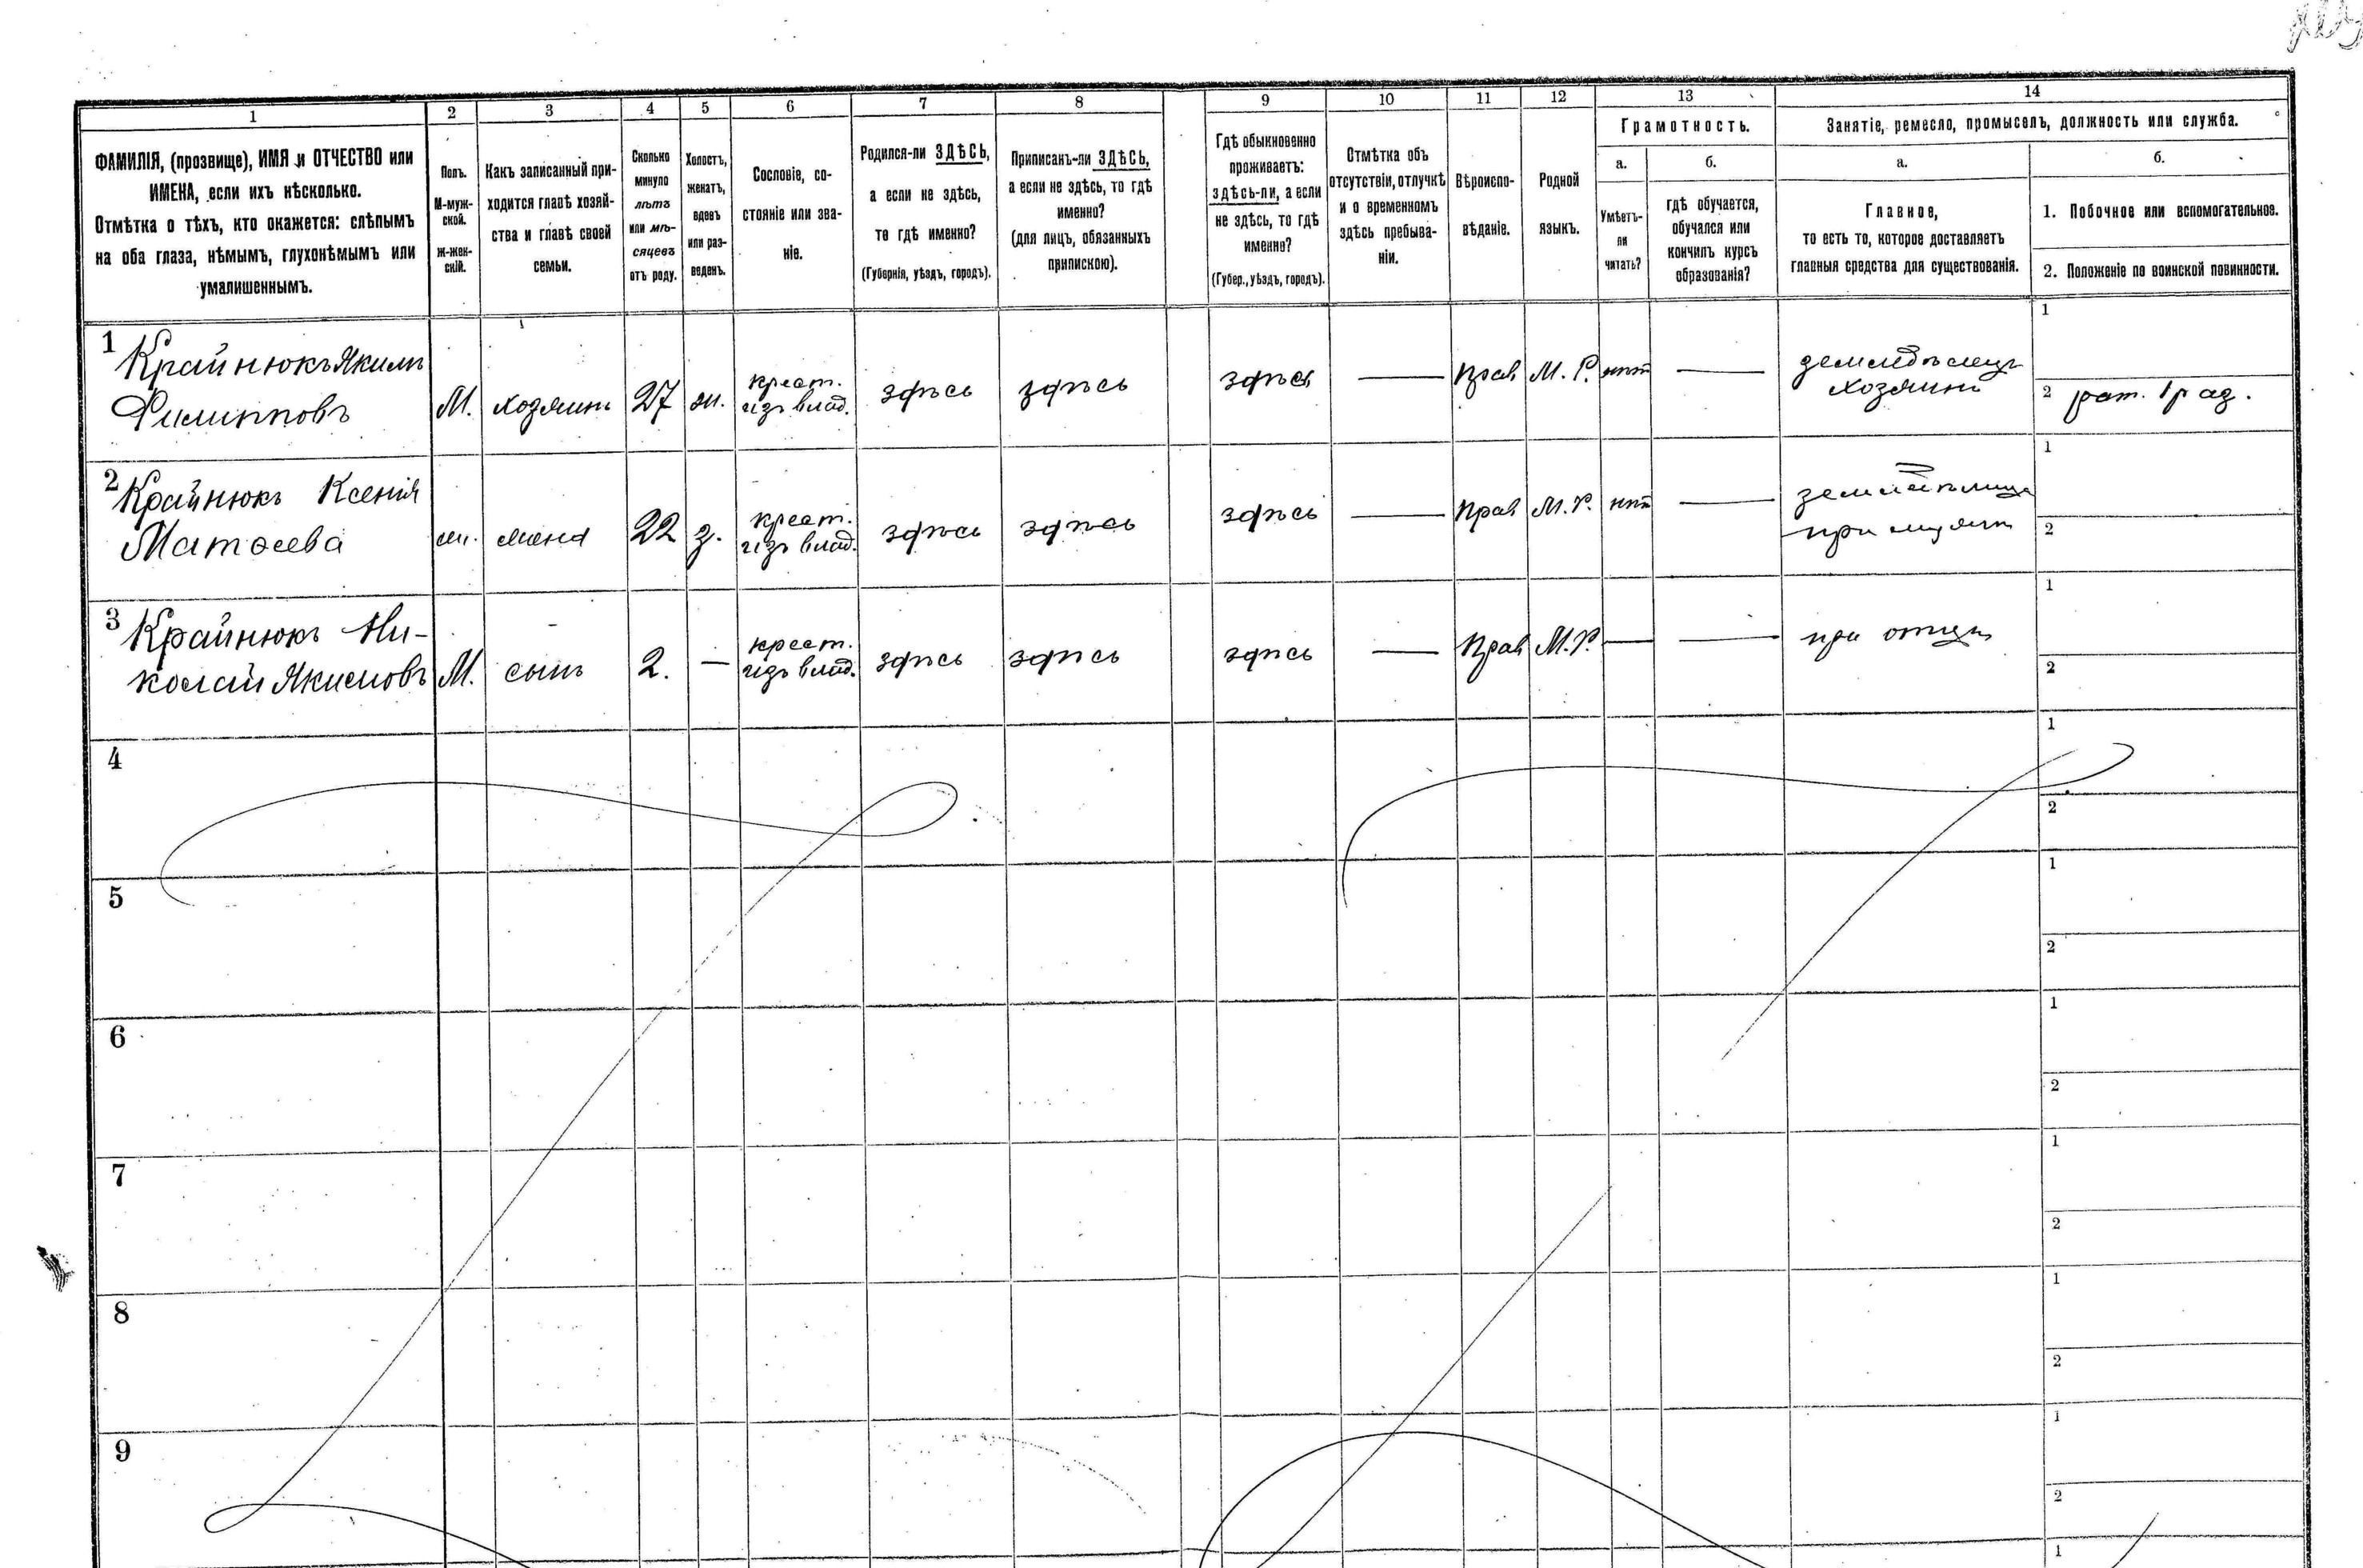 1 2 3 4 5 6 7 8 9 10 11 12 13 14
ФАМИЛІЯ, (прозвище), ИМЯ и ОТЧЕСТВО или
ИМЕНА, если ихъ нѣсколько.
Отмѣтка о тѣхъ, кто окажется: слѣпымъ
на оба глаза, нѣмымъ, глухонѣмымъ или
умалишеннымъ.
Полъ.
М-муж-
ской.
ж-жен-
скій.
Какъ записанный при-
ходится главѣ хозяй-
ства и главѣ своей
семьи.
Сколько
минуло
лѣтъ
или мѣ-
сяцевъ
отъ роду.
Холостъ,
женатъ,
вдовъ
или раз-
веденъ.
Сословіе, со-
стояніе или зва-
ніе.
Родился-ли ЗДѢСЬ,
а если не здѣсь,
то гдѣ именно?
(Губернія, уѣздъ, городъ).
Приписанъ-ли ЗДѢСЬ,
а если не здѣсь, то гдѣ
именно?
(для лицъ, обязанныхъ
припискою).
Гдѣ обыкновенно
проживаетъ:
здѣсь-ли, а если
не здѣсь, то гдѣ
именно?
(Губер., уѣздъ, городъ).
Отмѣтка объ
отсутствіи, отлучкѣ
и о временномъ
здѣсь пребыва-
ніи.
Вѣроиспо-
вѣданіе.
Родной
языкъ.
Грамотность.
а.
Умѣетъ-
ли
читать?
б.
гдѣ обучается,
обучался или
кончилъ курсъ
образованія?
Занятіе, ремесло, промыселъ, должность или служба.
а.
Главное,
то есть то, которое доставляетъ
главныя средства для существованія.
б.
1. Побочное или вспомогательное.
2. Положеніе по воинской повинности.
1 Крайнюкъ Якимъ
Филипповъ
М.
хозяинъ
27
ж.
крест.
изъ влад.
здѣсь
здѣсь
здѣсь
—
Прав
М. Р.
нѣт
—
земледѣлецъ
хозяинъ
1
2 рат. 1 раз.
2 Крайнюкъ Ксенія
Матѳеева
ж.
жена
22
з.
крест.
изъ влад.
здѣсь
здѣсь
здѣсь
—
Прав
М. Р.
нѣт
—
при мужѣ
1
2
3 Крайнюкъ Ни-
колай Якимовъ
М.
сынъ
2.
—
крест.
изъ влад.
здѣсь
здѣсь
здѣсь
—
Прав
М. Р.
—
—
при отцѣ
1
2
4
1
2
5
1
2
6
1
2
7
1
2
8
1
2
9
1
2
1